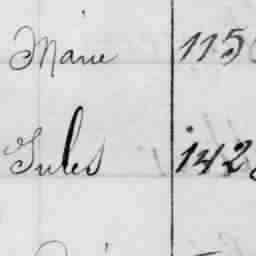 Marie 115
Jules 142